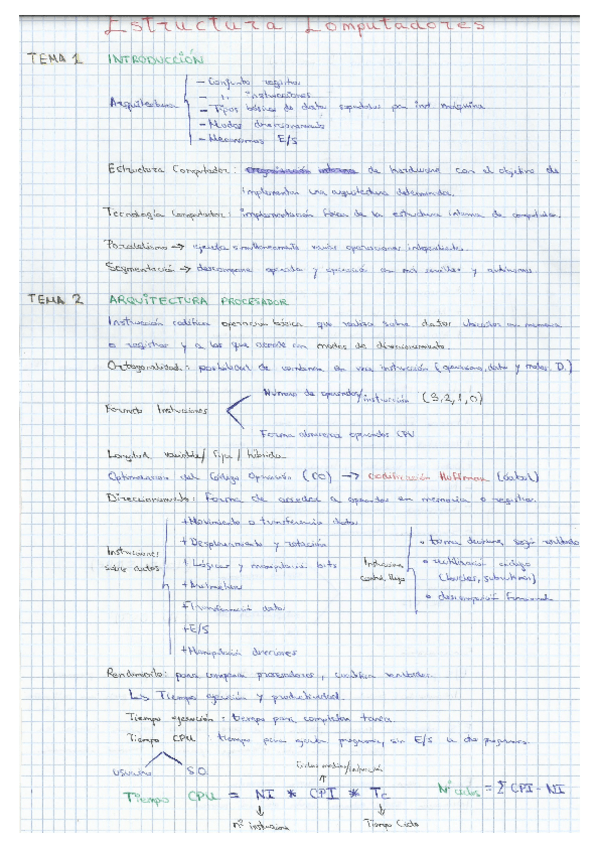 Estructura Computadores
TEMA 1 INTRODUCCIÓN
Arquitectura
- Conjunto registros
- " instrucciones
- Tipos básicos de datos soportados por inst. máquina
- Modos direccionamiento
- Mecanismos E/S
Estructura Computador: de hardware con el objetivo de
implementar una arquitectura determinada.
Tecnología Computador: implementación física de la estructura interna de computador.
Paralelismo → ejecuta simultáneamente varias operaciones independientes.
Segmentación → descompone y en más sencillas y autónomas
TEMA 2 ARQUITECTURA PROCESADOR
Instrucción codifica operación básica que realiza sobre datos ubicados en memoria
o registros y a los que accede con modos de direccionamiento.
Ortogonalidad: posibilidad de combinar en una instrucción (operaciones, datos y modos D.)
Formato Instrucciones
Número de operandos/instrucción (3,2,1,0)
Forma almacenar operandos CPU
Longitud variable/ fija / híbrida
Optimización del Código Operación (CO) → codificación Huffman
Direccionamiento: Forma de acceder a operandos en memoria o registros.
Instrucciones sobre datos
+ Movimiento o transferencia datos
+ Desplazamiento y rotación
+ Lógicas y manipulación bits
+ Aritméticas
+ Transformación datos
+ E/S
+ Manipulación direcciones
Instrucciones control flujo
• toma decisiones, según resultado
• reutilización código
(bucles, subrutinas)
• descomposición funcional
Rendimiento: para comparar procesadores, cuantificar
↳ Tiempo ejecución y productividad.
Tiempo ejecución: tiempo para completar tarea.
Tiempo CPU: tiempo para ejecutar programa, sin E/S u otros programas.
usuario S.O.
Ciclos medios/instrucción
Tiempo CPU = NI * CPI * Tc
nº instrucciones Tiempo Ciclo
Nº ciclos = Σ CPI - NI